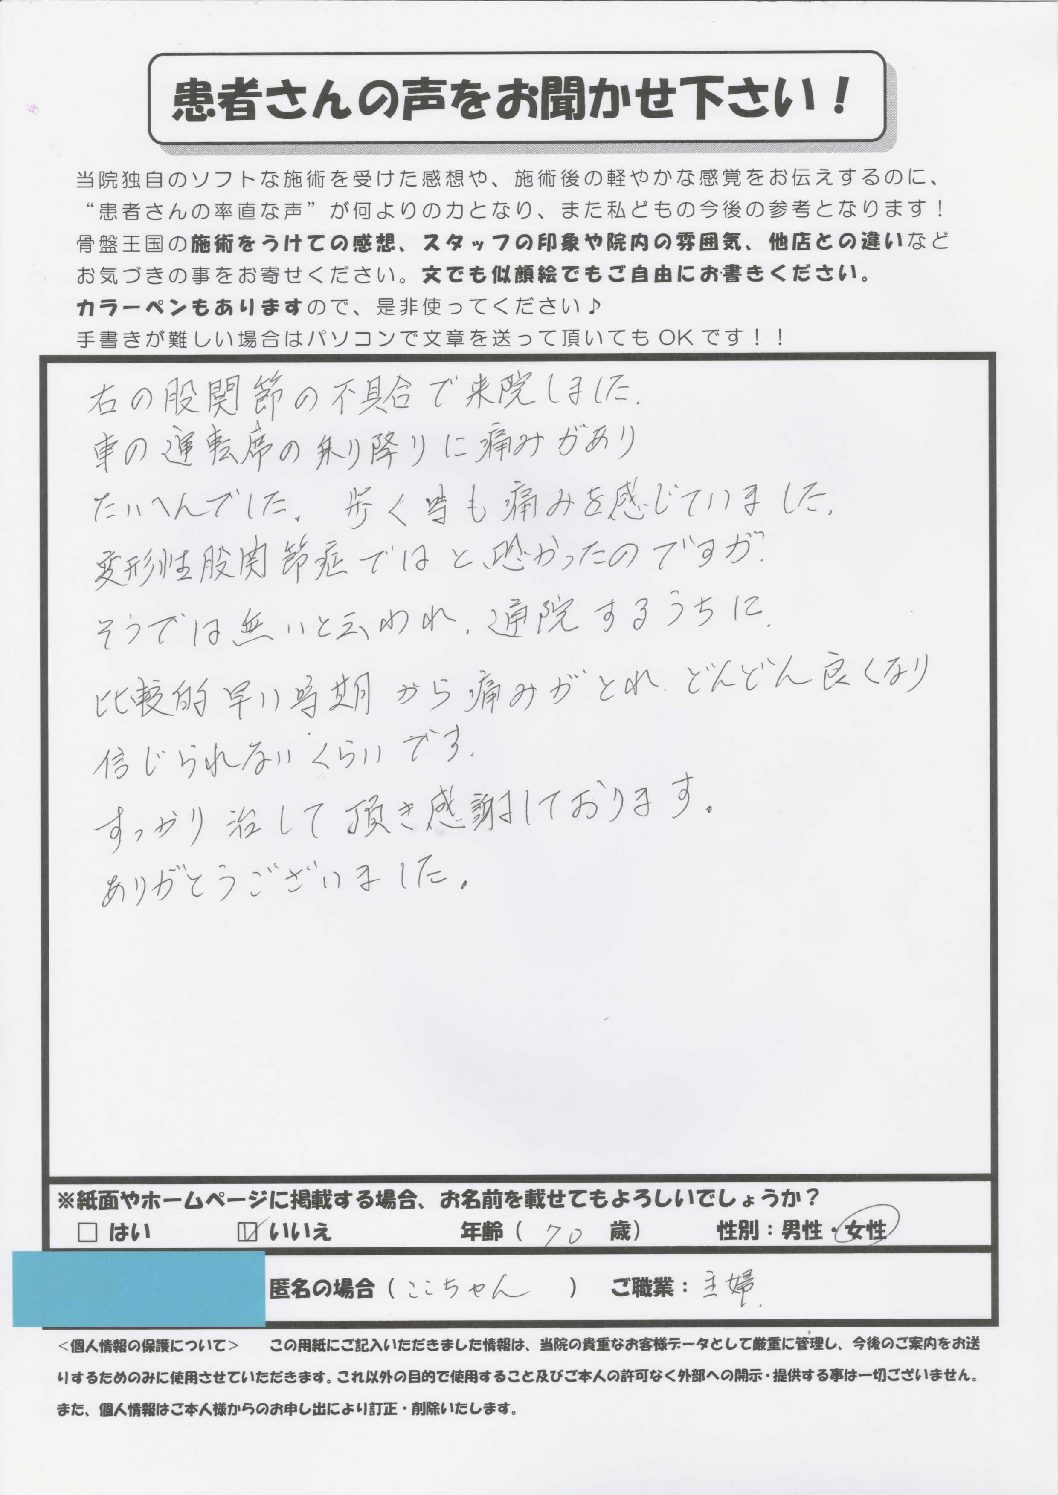 患者さんの声をお聞かせ下さい！
当院独自のソフトな施術を受けた感想や、施術後の軽やかな感覚をお伝えするのに、
“患者さんの率直な声”が何よりの力となり、また私どもの今後の参考となります！
骨盤王国の施術をうけての感想、スタッフの印象や院内の雰囲気、他店との違いなど
お気づきの事をお寄せください。文でも似顔絵でもご自由にお書きください。
カラーペンもありますので、是非使ってください♪
手書きが難しい場合はパソコンで文章を送って頂いてもOKです！！
右の股関節の不具合で来院しました。
車の運転席の乗り降りに痛みがあり
たいへんでした。歩く時も痛みを感じていました。
変形性股関節症ではと、恐かったのですが、
そうでは無いと云われ、通院するうちに、
比較的早い時期から痛みがとれ、どんどん良くなり
信じられないくらいです。
すっかり治して頂き感謝しております。
ありがとうございました。
※紙面やホームページに掲載する場合、お名前を載せてもよろしいでしょうか？
□ はい ☑ いいえ 年齢（ 70 歳） 性別：男性・女性
匿名の場合（ ここちゃん ） ご職業：主婦
＜個人情報の保護について＞ この用紙にご記入いただきました情報は、当院の貴重なお客様データとして厳重に管理し、今後のご案内をお送
りするためのみに使用させていただきます。これ以外の目的で使用すること及びご本人の許可なく外部への開示・提供する事は一切ございません。
また、個人情報はご本人様からのお申し出により訂正・削除いたします。